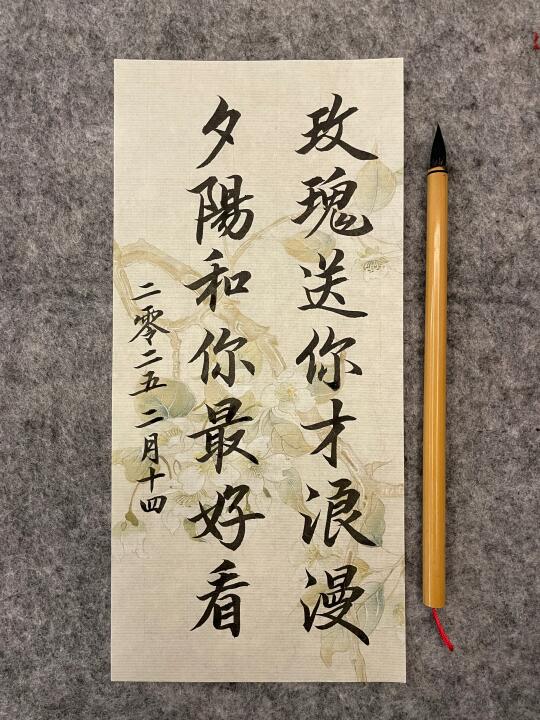 玫瑰送你才浪漫
夕陽和你最好看
二零二五 二月十四